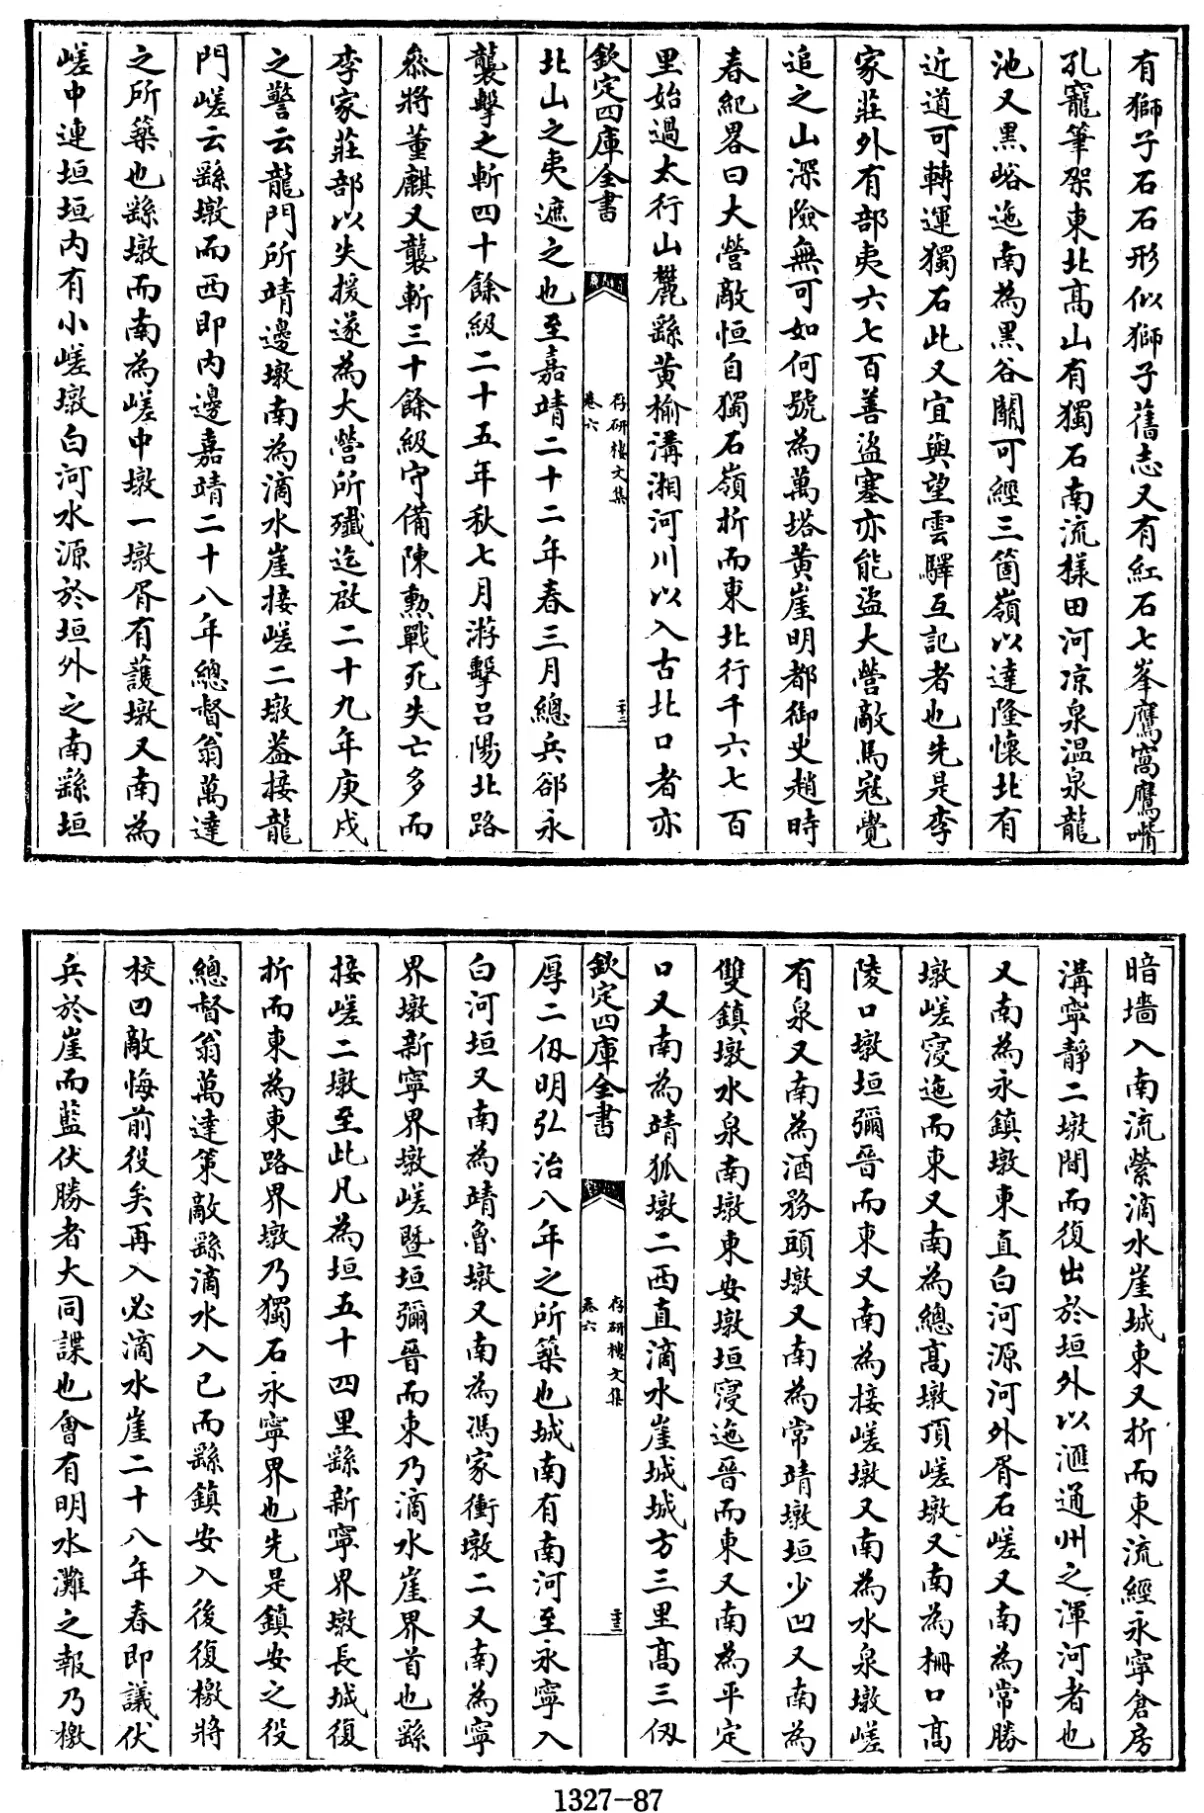 有獅子石石形似獅子舊志又有紅石七峯鷹窩鷹嘴
孔竉筆架東北高山有獨石南流様田河凉泉温泉龍
池又黒峪迤南為黒谷關可經三箇嶺以達隆懷北有
近道可轉運獨石此又宜與望雲驛互記者也先是李
家莊外有部夷六七百善盜塞亦能盜大營敵馬冦覺
追之山深險無可如何號為萬塔黄崖明都御史趙時
春紀畧曰大營敵恒自獨石嶺折而東北行千六七百
里始過太行山麓繇黄榆溝湘河川以入古北口者亦
欽定四庫全書
存研樓文集
卷六
二十二
北山之夷遮之也至嘉靖二十二年春三月總兵郤永
襲擊之斬四十餘級二十五年秋七月游擊吕陽北路
叅將董麒又襲斬三十餘級守備陳勲戰死失亡多而
李家莊部以失援遂為大營所殱迄啟二十九年庚戌
之警云龍門所靖邊墩南為滴水崖接嵯二墩葢接龍
門嵯云繇墩而西即内邊嘉靖二十八年總督翁萬達
之所築也繇墩而南為嵯中墩一墩胥有護墩又南為
嵯中連垣垣内有小嵯墩白河水源於垣外之南繇垣
暗墻入南流縈滴水崖城東又折而東流經永寧倉房
溝寧靜二墩間而復出於垣外以滙通州之渾河者也
又南為永鎮墩東直白河源河外胥石嵯又南為常勝
墩嵯寖迤而東又南為總髙墩頂嵯墩又南為柵口髙
陵口墩垣彌晉而東又南為接嵯墩又南為水泉墩嵯
有泉又南為酒務頭墩又南為常靖墩垣少凹又南為
雙鎮墩水泉南墩東安墩垣寖迤晉而東又南為平定
口又南為靖狐墩二西直滴水崖城城方三里髙三仭
欽定四庫全書
存研樓文集
卷六
二十三
厚二仭明弘治八年之所築也城南有南河至永寧入
白河垣又南為靖魯墩又南為馮家衝墩二又南為寧
界墩新寧界墩嵯暨垣彌晉而東乃滴水崖界首也繇
接嵯二墩至此凡為垣五十四里繇新寧界墩長城復
折而東為東路界墩乃獨石永寧界也先是鎮安之役
總督翁萬達策敵繇滴水入已而繇鎮安入後復檄將
校曰敵悔前役矣再入必滴水崖二十八年春即議伏
兵於崖而藍伏勝者大同諜也會有明水灘之報乃檄
1327-87